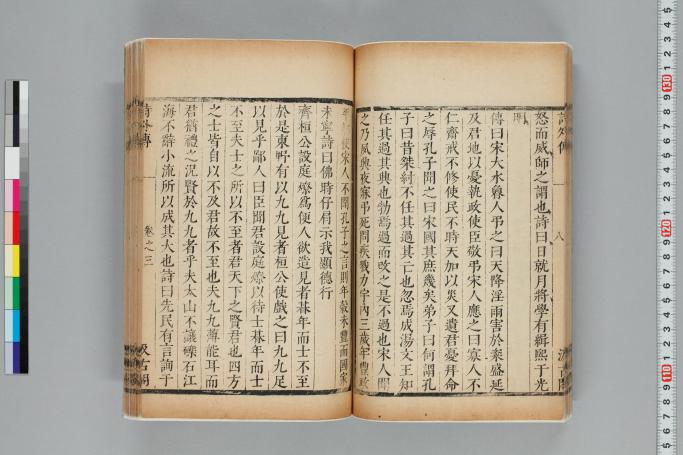 詩外傳
八
汲古閣
怒而威師之謂也詩曰日就月將學有緝熙于光
明
傳曰宋大水魯人弔之曰天降淫雨害於粢盛延
及君地以憂執政使臣敬弔宋人應之曰寡人不
仁齋戒不修使民不時天加以災又遺君憂拜命
之辱孔子聞之曰宋國其庶幾矣弟子曰何謂孔
子曰昔桀紂不任其過其亡也忽焉成湯文王知
任其過其興也勃焉過而改之是不過也宋人聞
之乃夙興夜寐弔死問疾戮力宇內三歲年豐政
宋人不聞孔子之言則年穀未豐而國家
未寧詩曰佛時仔肩示我顯德行
齊桓公設庭燎爲便人欲造見者朞年而士不至
於是東野有以九九見者桓公使戲之曰九九足
以見乎鄙人曰臣聞君設庭燎以待士朞年而士
不至夫士之所以不至者君天下之賢君也四方
之士皆自以不及君故不至也夫九九薄能耳而
君猶禮之況賢於九九者乎夫太山不讓礫石江
海不辭小流所以成其大也詩曰先民有言詢于
詩外傳
卷之三
汲古閣